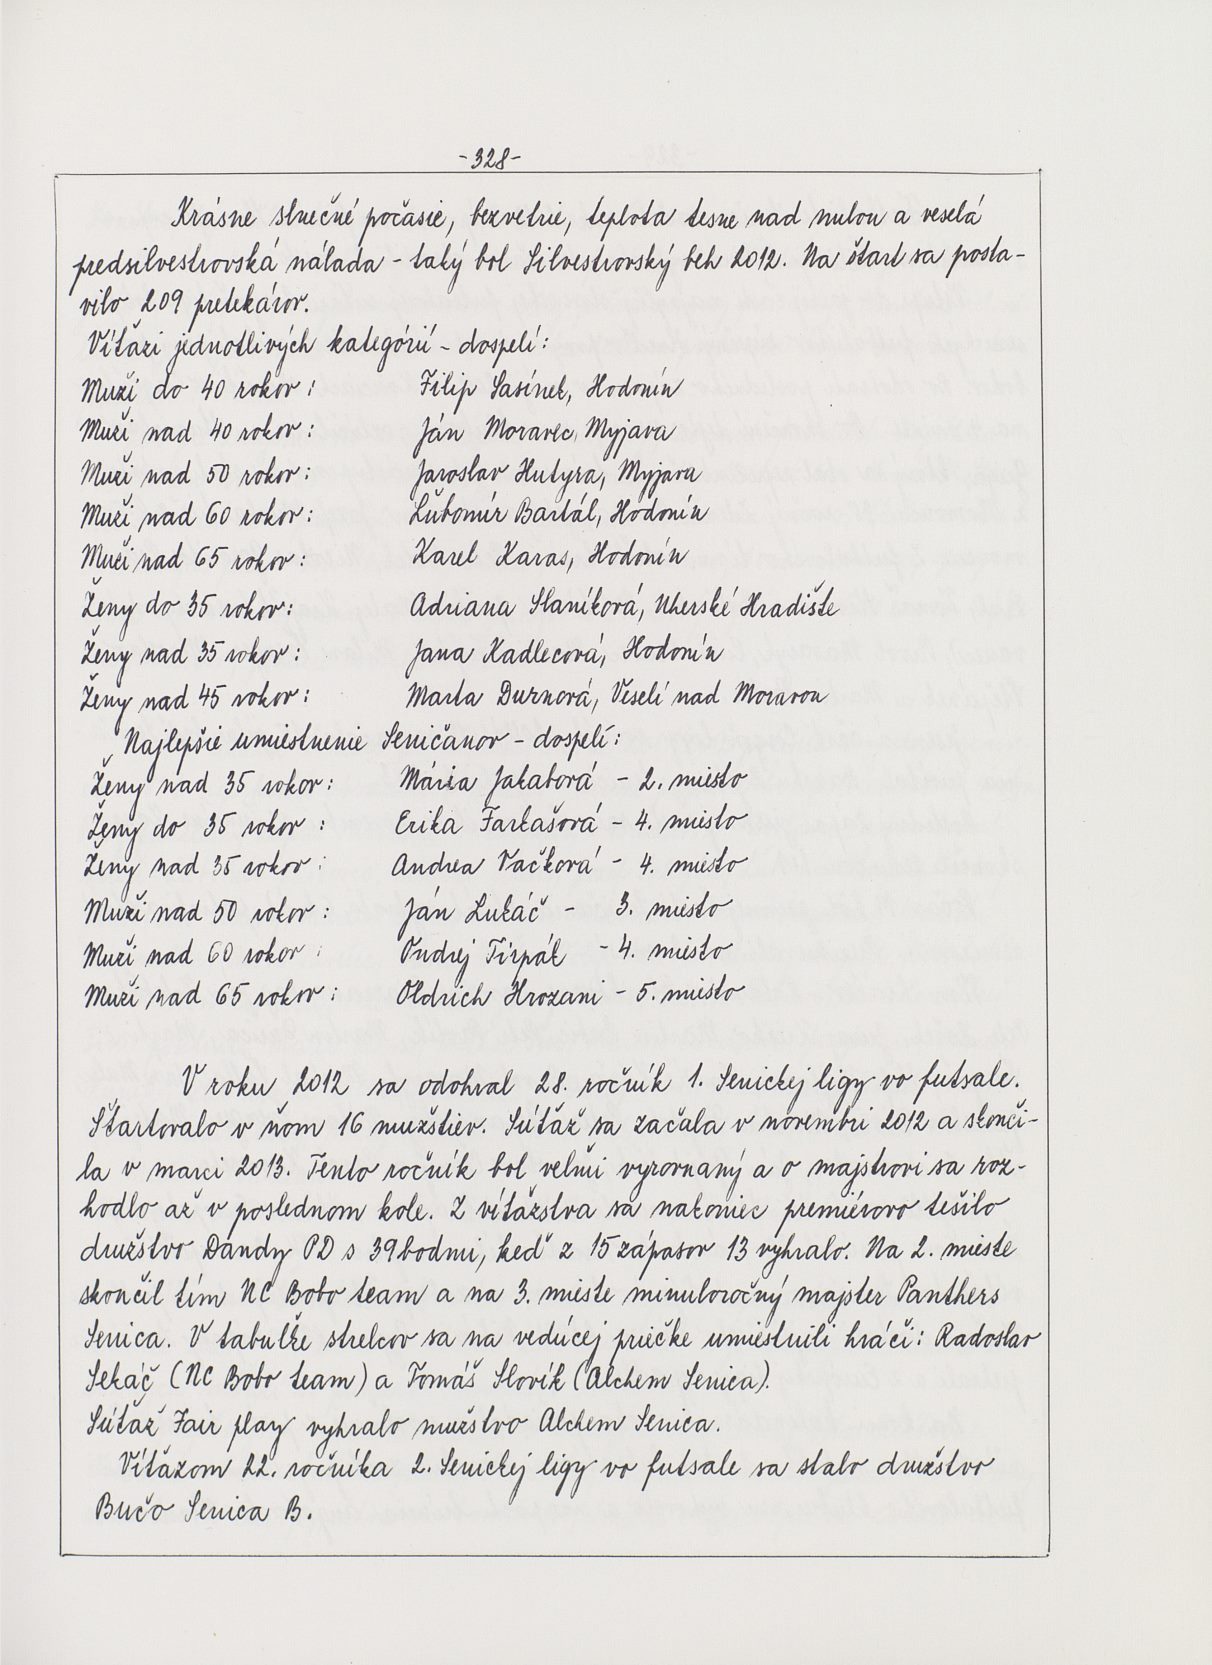 -328-
Krásne slnečné počasie, bezvetrie, teplota tesne nad nulou a veselá
predsilvestrovská nálada - taký bol Silvestrovský beh 2012. Na štart sa posta-
vilo 209 pretekárov.
Víťazi jednotlivých kategórií - dospelí:
Muži do 40 rokov: Filip Sasínek, Hodonín
Muži nad 40 rokov: Ján Moravec, Myjava
Muži nad 50 rokov: Jaroslav Hutyra, Myjava
Muži nad 60 rokov: Ľubomír Bartál, Hodonín
Muži nad 65 rokov: Karel Karas, Hodonín
Ženy do 35 rokov: Adriana Slaníková, Uherské Hradište
Ženy nad 35 rokov: Jana Kadlecová, Hodonín
Ženy nad 45 rokov: Marta Durnová, Veselí nad Moravou
Najlepšie umiestnenie Seničanov - dospelí:
Ženy nad 35 rokov: Mária Jakabová - 2. miesto
Ženy do 35 rokov: Erika Farkašová - 4. miesto
Ženy nad 35 rokov: Andrea Vačková - 4. miesto
Muži nad 50 rokov: Ján Lukáč - 3. miesto
Muži nad 60 rokov: Ondrej Tirpák - 4. miesto
Muži nad 65 rokov: Oldrich Hrozani - 5. miesto
V roku 2012 sa odohral 28. ročník 1. Senickej ligy vo futsale.
Štartovalo v ňom 16 mužstiev. Súťaž sa začala v novembri 2012 a skonči-
la v marci 2013. Tento ročník bol veľmi vyrovnaný a o majstrovi sa roz-
hodlo až v poslednom kole. Z víťazstva sa nakoniec premiérovo tešilo
družstvo Dandy PD s 39 bodmi, keď z 15 zápasov 13 vyhralo. Na 2. mieste
skončil tím NC Bobo team a na 3. mieste minuloročný majster Panthers
Senica. V tabuľke strelcov sa na vedúcej priečke umiestnili hráči: Radoslav
Sekáč (NC Bobo team) a Tomáš Slovík (Alchem Senica).
Súťaž Fair play vyhralo mužstvo Alchem Senica.
Víťazom 22. ročníka 2. Senickej ligy vo futsale sa stalo družstvo
Bučo Senica B.